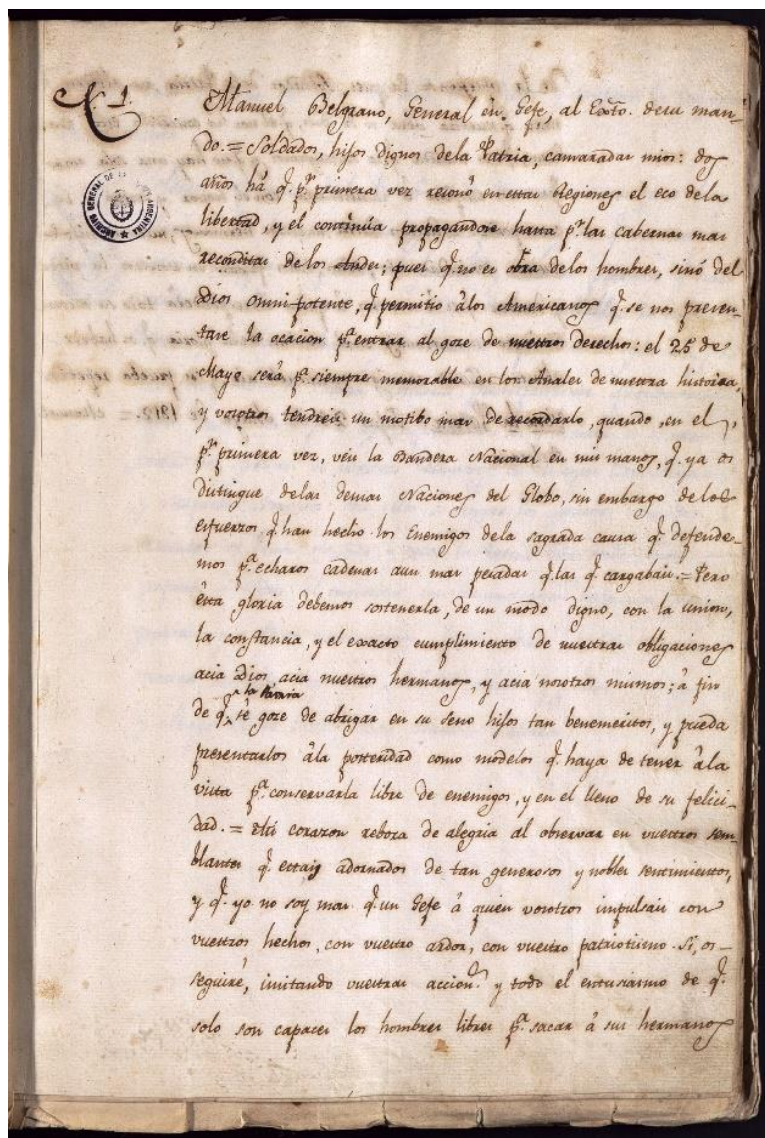 N 1.
Manuel Belgrano, General en Gefe, al Exto. desu man-
do. = Soldados, hijos dignos dela Patria, camaradas mios: dos
años há q.e p.r primera vez resonó en estas Regiones el eco dela
libertad, y él continúa propagandose hasta p.r las cabernas mas
reconditas de los Andes; pues q.e no es obra delos hombres, sinó del
Dios omnipotente, q.e permitio álos Americanos q.e se nos presen-
tase la ocacion p.a entrar al goze de nuestros derechos: el 25 de
Mayo será p.a siempre memorable en los Anales de nuestra historia,
y vosotros tendreis un motibo mas de recordarlo, quando, en el,
p.r primera vez, veis la Bandera Nacional en mis manos, q.e ya os
distingue delas demas Naciones del Globo, sin embargo de los
esfuerzos q.e han hecho los Enemigos dela sagrada causa q.e defende-
mos p.a echaros cadenas aun mas pesadas q.e las q.e cargabais. = Pero
ésta gloria debemos sostenerla, de un modo digno, con la union,
la constancia, y el exacto cumplimiento de nuestras obligaciones
acia Dios, acia nuestros hermanos, y acia nosotros mismos; á fin
de q.e la Patria se goze de abrigar en su seno hijos tan benemeritos, y pueda
presentarlos ála posteridad como modelos q.e haya de tener ála
vista p.a conservarla libre de enemigos, y en el lleno de su felici-
dad. = Mi corazon rebosa de alegria al observar en vuestros sem-
blantes q.e estais adornados de tan generosos y nobles sentimientos,
y q.e yo no soy mas q.e un Gefe á quien vosotros impulsais con
vuestros hechos, con vuestro ardor, con vuestro patriotismo. Si, os
seguiré, imitando vuestras accion.s y todo el entusiasmo de q.e
solo son capaces los hombres libres p.a sacar á sus hermanos
ARCHIVO GENERAL DE LA NACION ARGENTINA